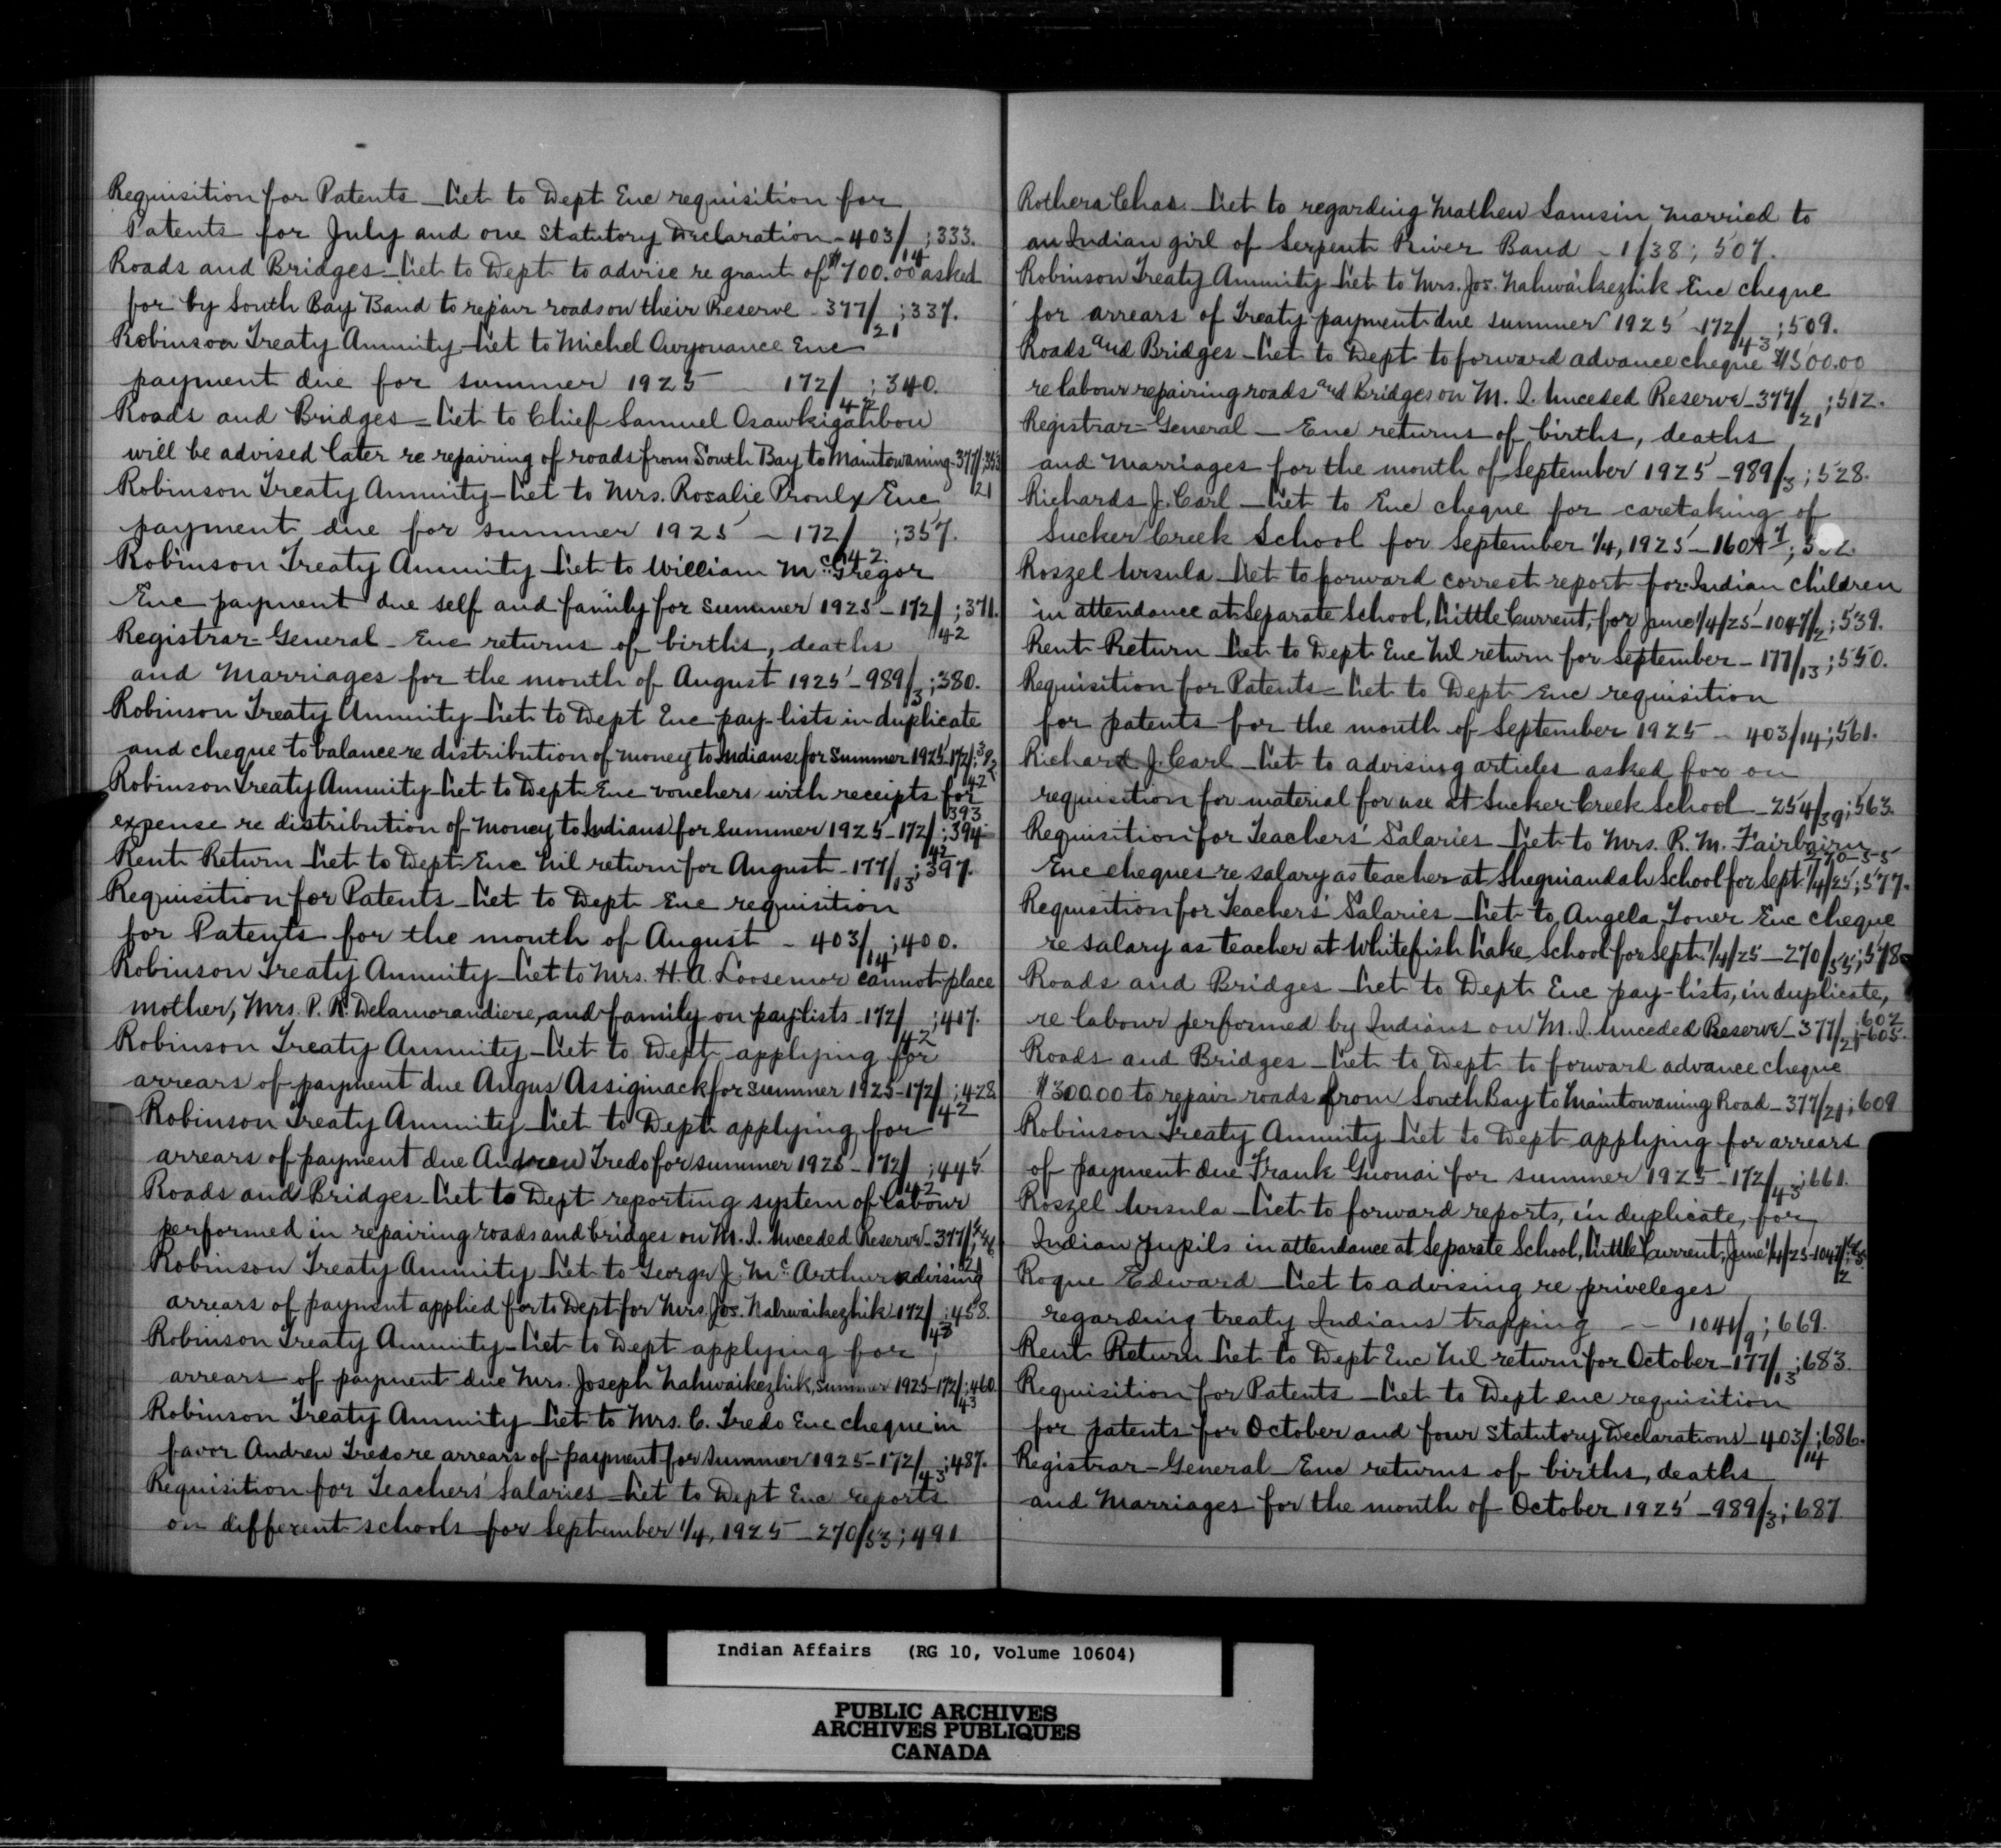 Requisition for Patents - Let to Dept Enc requisition for
Patents for July and one Statutory Declaration - 403/14; 333.
Roads and Bridges - Let to Dept to advise re grant of $700.00 asked
for by South Bay Band to repair roads on their Reserve - 377/21; 337.
Robinson Treaty Annuity - Let to Michel Enc
payment due for summer 1925 - 172/42; 340.
Roads and Bridges - Let to Chief Samuel Osawkigahbou
will be advised later re repairing of roads from South Bay to Manitowaning - 377/21; 353
Robinson Treaty Annuity - Let to Mrs. Rosalie Proulx Enc
payment due for summer 1925 - 172/42; 357.
Robinson Treaty Annuity - Let to William McGregor
Enc payment due self and family for summer 1925 - 172/42; 371.
Registrar-General - Enc returns of births, deaths
and Marriages for the month of August 1925 - 989/3; 380.
Robinson Treaty Annuity - Let to Dept Enc pay-lists in duplicate
and cheque to balance re distribution of money to Indians for Summer 1925 - 172/42;
Robinson Treaty Annuity - Let to Dept Enc vouchers with receipts for
expense re distribution of Money to Indians for Summer 1925 - 172/42; 393 394
Rent Return - Let to Dept Enc Nil return for August - 177/13; 397.
Requisition for Patents - Let to Dept Enc requisition
for Patents for the month of August - 403/14; 400.
Robinson Treaty Annuity - Let to Mrs. H. A. Loosemor cannot place
mother, Mrs. P. R. Delamorandiere, and family on paylists - 172/42; 417.
Robinson Treaty Annuity - Let to Dept applying for
arrears of payment due Angus Assiginack for summer 1925 - 172/42; 428
Robinson Treaty Annuity - Let to Dept applying for
arrears of payment due Andrew Fredo for summer 1925 - 172/42; 445.
Roads and Bridges - Let to Dept reporting system of labour
performed in repairing roads and bridges on M. I. Unceded Reserve - 377/21; 446
Robinson Treaty Annuity - Let to George J. McArthur advising
arrears of payment applied for to Dept for Mrs. Jos. Nahwaikezhik 172/43; 458.
Robinson Treaty Annuity - Let to Dept applying for
arrears of payment due Mrs. Joseph Nahwaikezhik, Summer 1925 - 172/43; 460.
Robinson Treaty Annuity - Let to Mrs. C. Fredo Enc cheque in
favor Andrew Fredo re arrears of payment for summer 1925 - 172/43; 487.
Requisition for Teachers' Salaries - Let to Dept Enc reports
on different schools for September 1/4, 1925 - 270/53; 491
Rothera Chas. - Let to regarding Mathew Samsin married to
an Indian girl of Serpent River Band - 1/38; 507.
Robinson Treaty Annuity - Let to Mrs. Jos. Nahwaikezhik Enc cheque
for arrears of Treaty payment due summer 1925 - 172/43; 509.
Roads and Bridges - Let to Dept to forward advance cheque $1500.00
re labour repairing roads and Bridges on M. I. Unceded Reserve - 377/21; 512.
Registrar-General - Enc returns of births, deaths
and Marriages for the month of September 1925 - 989/3; 528.
Richards J. Carl - Let to Enc cheque for caretaking of
Sucker Creek School for September 1/4, 1925 -
Roszel Ursula - Let to forward correct report for Indian children
in attendance at Separate School, Little Current, for June 1/4/25 - 1047/2; 539.
Rent Return - Let to Dept Enc Nil return for September - 177/13; 550.
Requisition for Patents - Let to Dept Enc requisition
for patents for the month of September 1925 - 403/14; 561.
Richard J. Carl - Let to advising articles asked for on
requisition for material for use at Sucker Creek School - 254/39; 563.
Requisition for Teachers' Salaries - Let to Mrs. R. M. Fairbairn
Enc cheques re salary as teacher at Sheguiandah School for Sept. 1/4/25; 270-55 577.
Requisition for Teachers' Salaries - Let to Angela Toner Enc cheque
re salary as teacher at Whitefish Lake School for Sept. 1/4/25 - 270/55; 578
Roads and Bridges - Let to Dept Enc pay-lists, in duplicate,
re labour performed by Indians on M. I. Unceded Reserve - 377/21; 602-605.
Roads and Bridges - Let to Dept to forward advance cheque
$300.00 to repair roads from South Bay to Manitowaning Road - 377/21; 609
Robinson Treaty Annuity - Let to Dept applying for arrears
of payment due Frank Guonai for summer 1925 - 172/43; 661.
Roszel Ursula - Let to forward reports, in duplicate, for
Indian Pupils in attendance at Separate School, Little Current, June 1/4/25 - 1047/2;
Roque Edward - Let to advising re priveleges
regarding treaty Indians trapping - 1041/9; 669.
Rent Return - Let to Dept Enc Nil return for October - 177/13; 683.
Requisition for Patents - Let to Dept enc requisition
for patents for October and four Statutory Declarations - 403/14; 686.
Registrar-General - Enc returns of births, deaths
and Marriages for the month of October 1925 - 989/3; 687.
Indian Affairs (RG 10, Volume 10604)
PUBLIC ARCHIVES
ARCHIVES PUBLIQUES
CANADA